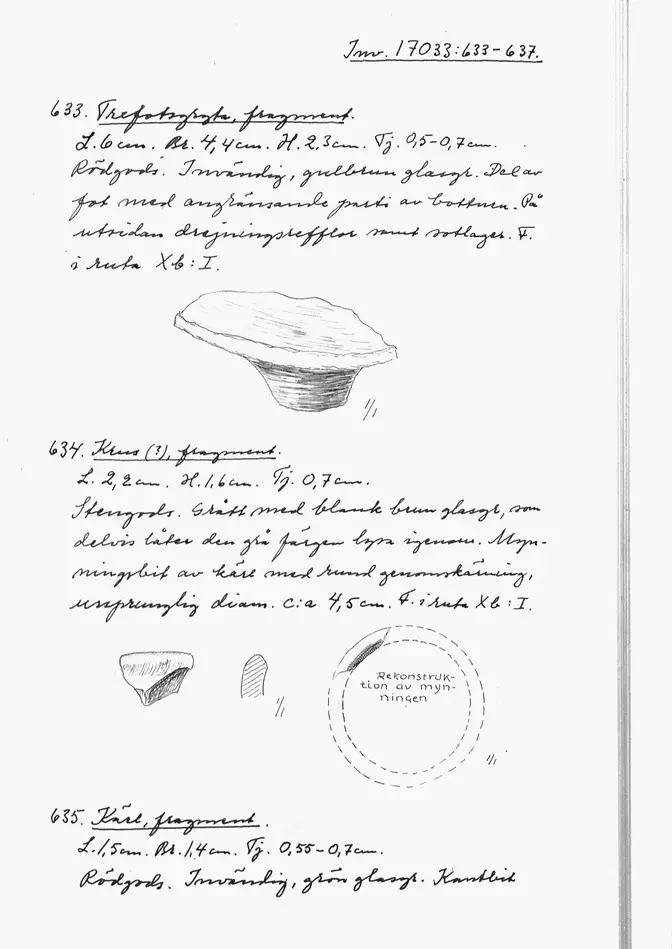 Inv. 17033:633-637.
633. Trefotsgryta, fragment.
L. 6 cm. Br. 4,4 cm. H. 2,3 cm. Tj. 0,5-0,7 cm.
Rödgods. Invändig, gulbrun glasyr. Del av
fot med angränsande parti av bottnen. På
utsidan drejningsrefflor samt sotlager. F.
i ruta Xb:I.
1/1
634. Krus (?), fragment.
L. 2,2 cm. H. 1,6 cm. Tj. 0,7 cm.
Stengods. Grått med blank brun glasyr, som
delvis låter den grå färgen lysa igenom. Myn-
ningsbit av kärl med rund genomskärning,
ursprunglig diam. c:a 4,5 cm. F. i ruta Xb:I.
Rekonstruk-
tion av myn-
ningen
1/1
1/1
635. Kärl, fragment.
L. 1,5 cm. Br. 1,4 cm. Tj. 0,55-0,7 cm.
Rödgods. Invändig, grön glasyr. Kantbit